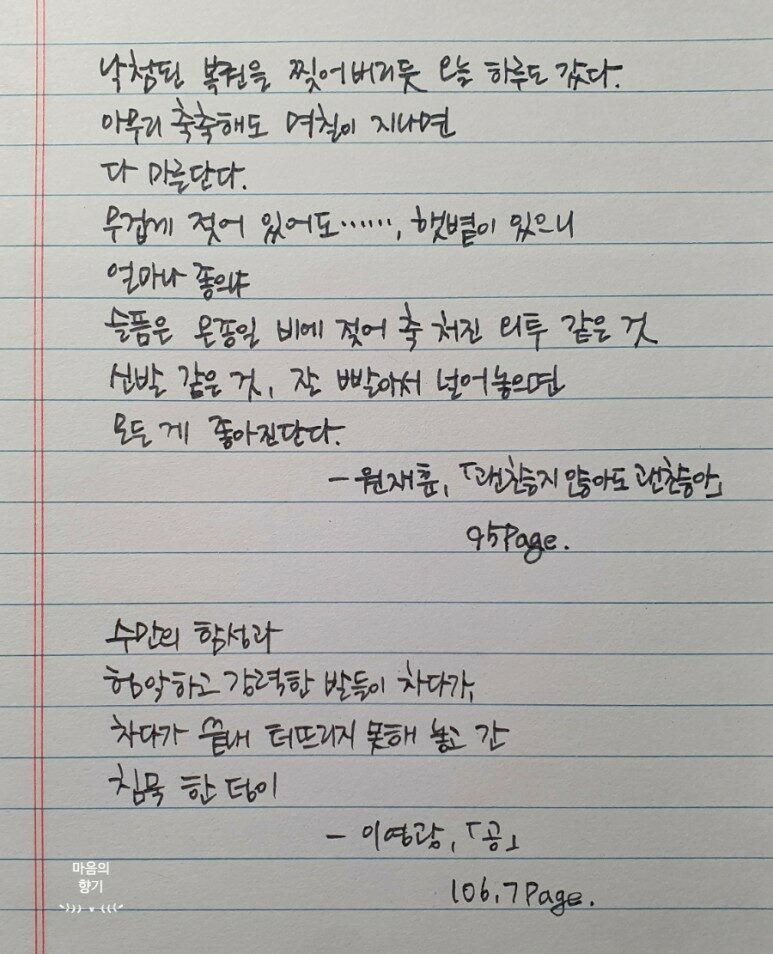 낙첨된 복권을 찢어버리듯 오늘 하루도 갔다.
아무리 축축해도 며칠이 지나면
다 마를단다.
무겁게 젖어 있어도……, 햇볕이 있으니
얼마나 좋으냐
슬픔은 온종일 비에 젖어 축 처진 외투 같은 것
신발 같은 것, 잘 빨아서 널어놓으면
모든 게 좋아진단다.
- 원재훈, 「괜찮지 않아도 괜찮아」
95Page.
수만의 함성과
험악하고 강력한 발들이 차다가,
차다가 끝내 터뜨리지 못해 놓고 간
침묵 한 덩이
- 이영광, 「공」
106,7Page.
마음의
향기